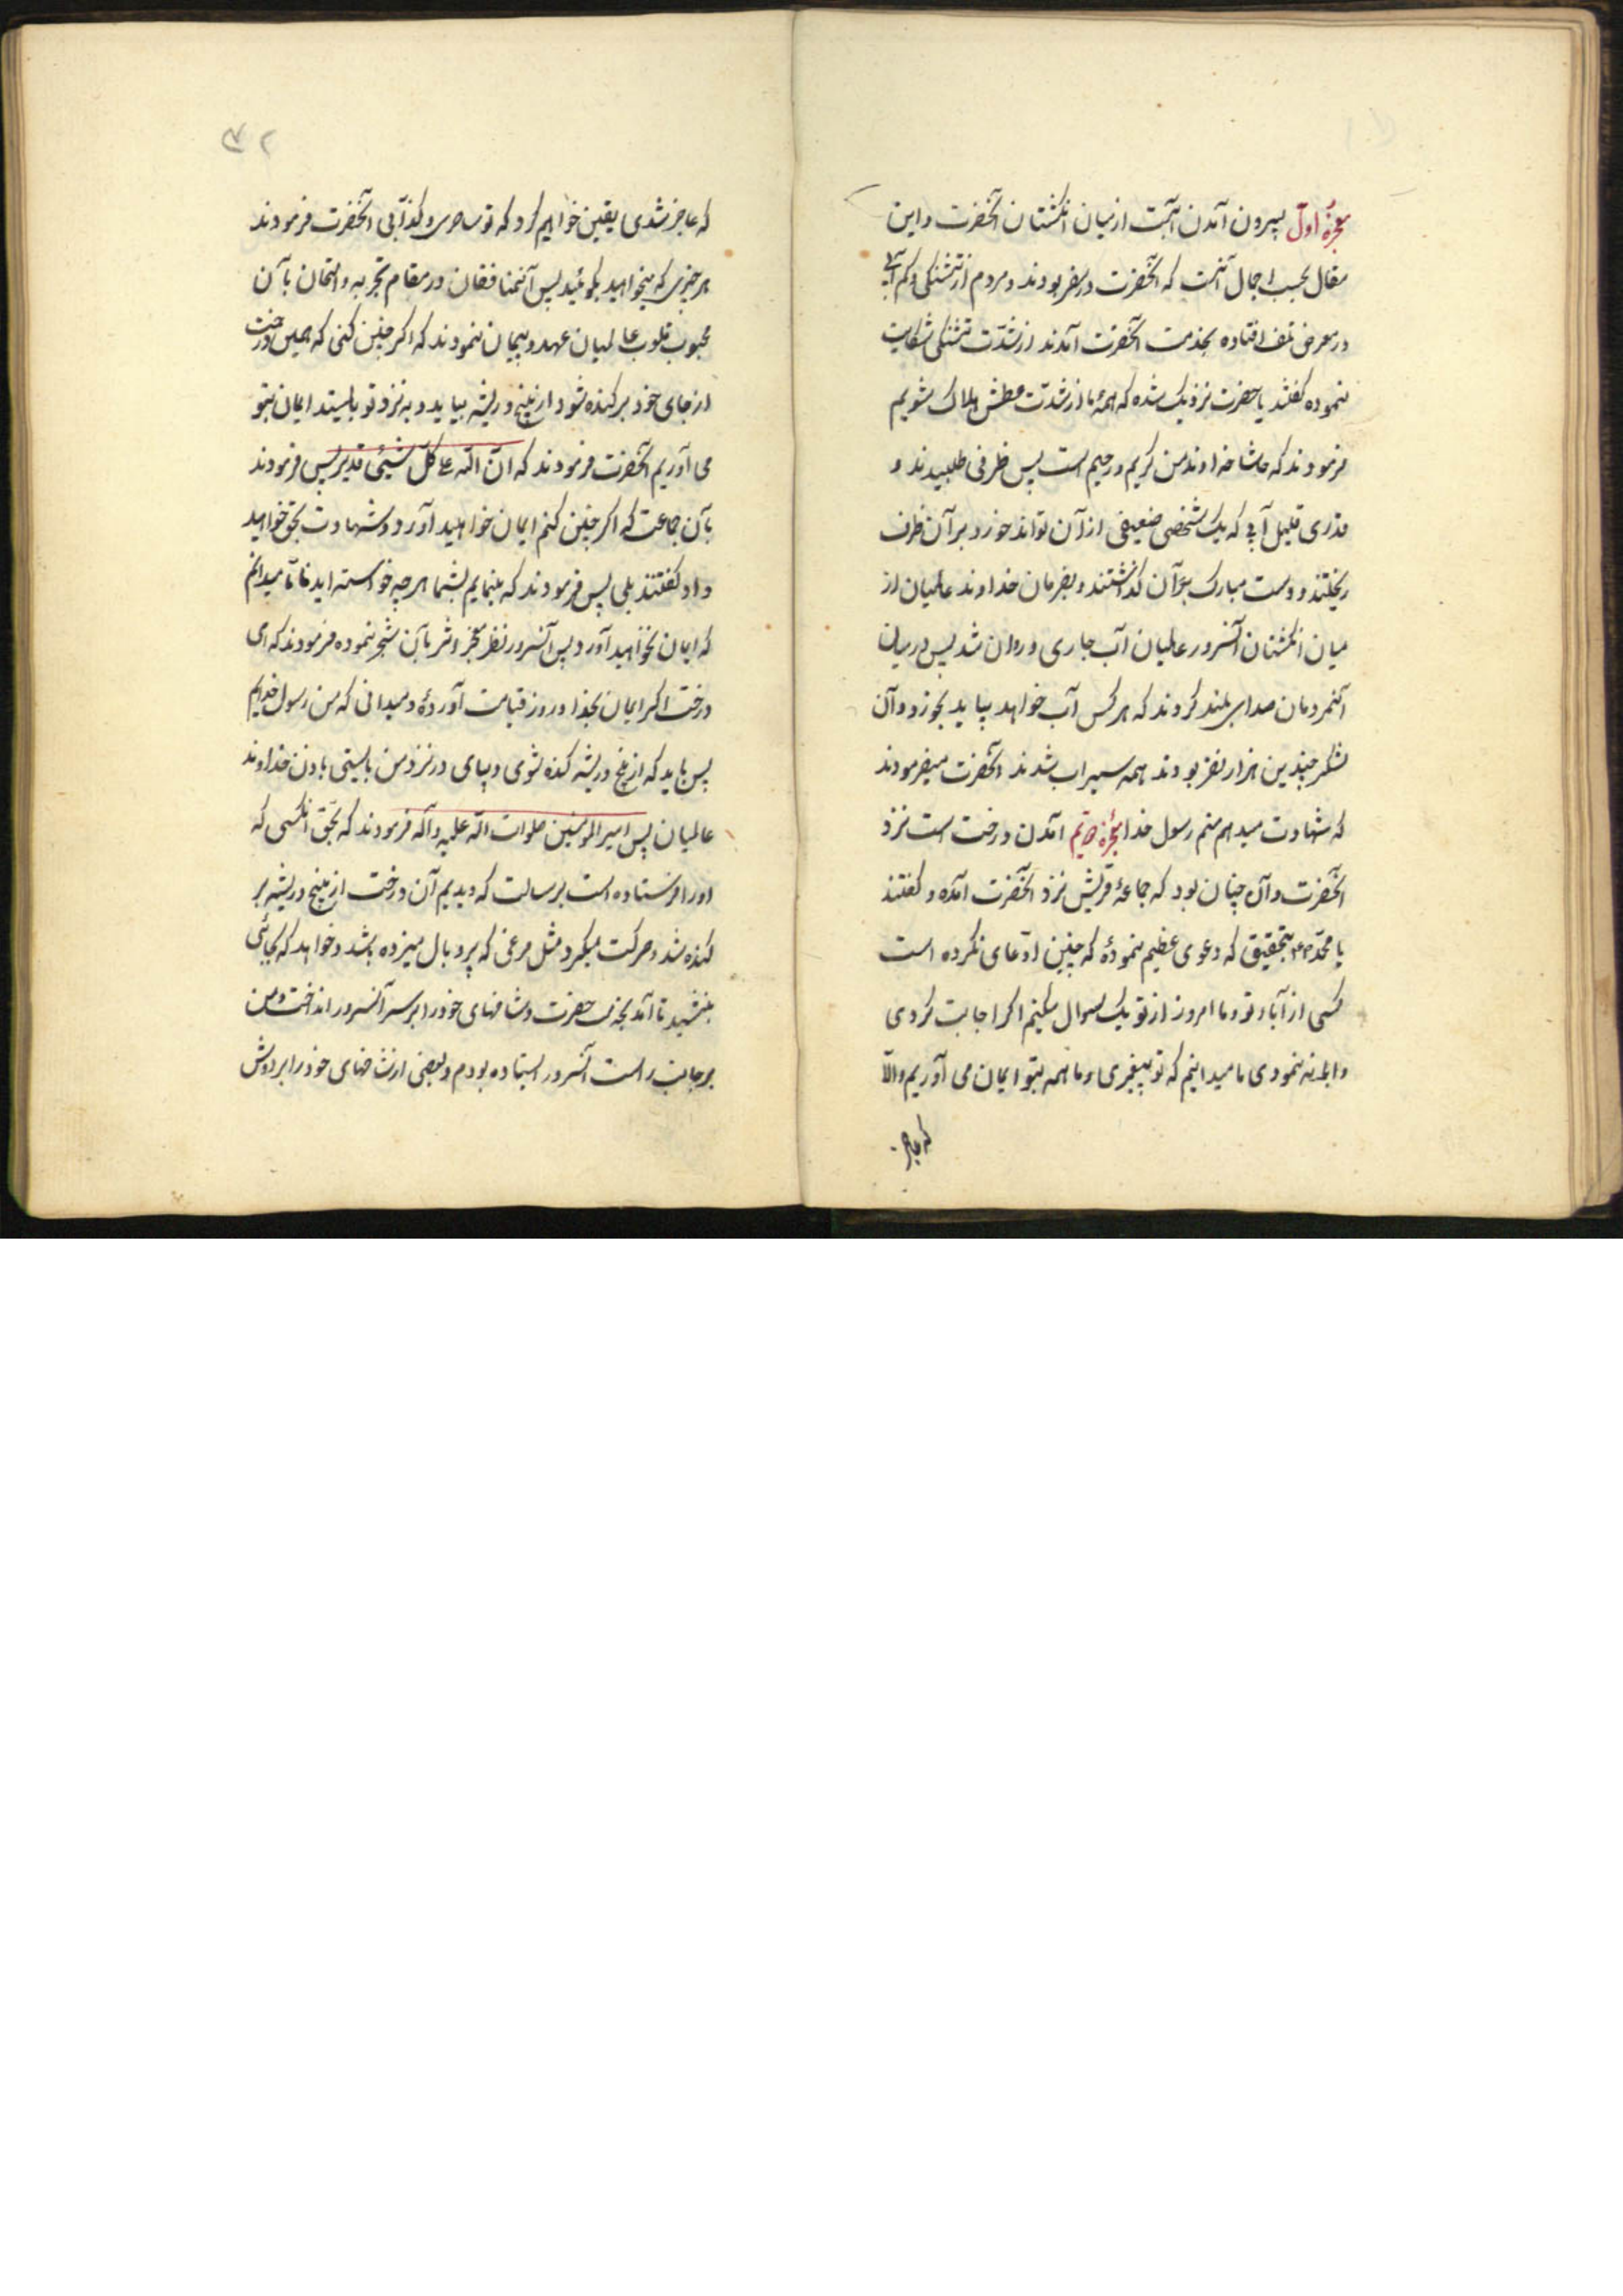 معجزهٔ اول بیرون آمدن آبست از میان انگشتان آنحضرت و این
مقال بحسب اجمال آنست که آنحضرت در سفر بودند و مردم از تشنکی و کم آبی
در معرض تلف افتاده بخدمت آنحضرت آمدند از شدّت تشنکی شکایت
نموده کفتند یا حضرت نزدیک شده که همهٔ ما از شدت عطش هلاک شویم
فرمودند که حاشا خداوند من کریم و رحیم است پس ظرفی طلبیدند و
قدری قلیل آبی که یک شخصی ضعیفی از آن تواند خورد بر آن ظرف
ریختند و دست مبارک بر آن کذاشتند و بفرمان خداوند عالمیان از
میان انکشتان آنسرور عالمیان آب جاری و روان شد پس در میان
آنمردمان صدا بر بلند کردند که هر کس آب خواهد بیاید بخورد و آن
لشکر چندین هزار نفر بودند همه سیراب شدند آنحضرت میفرمودند
که شهادت میدهم منم رسول خدا معجزهٔ دویّم آمدن درخت است نزد
آنحضرت و آن چنان بود که جماعهٔ قریش نزد آنحضرت آمده و کفتند
یا محمّد بتحقیق که دعوی عظیم نمودهٔ که چنین ادّعای نکرده است
کسی از آباء تو و ما امروز از تو یک سوال میکنیم اکر اجابت کردی
و ابما نمودی ما میدانیم که تو پیغمبری و ما همه بتو ایمان می آوریم والّا
که عاجز
۴۲
که عاجز شدی یقین خواهیم کرد که تو ساحر و کذّابی آنحضرت فرمودند
هر چیزی که میخواهید بکوئید پس آنمنافقان در مقام تجربه و امتحان با آن
محبوب قلوب عالمیان عهد و پیمان نمودند که اکر چنین کنی که همین درخت
از جای خود برکنده شود از بیخ و ریشه بیاید و به نزد تو بایستد ایمان بتو
می آوریم آنحضرت فرمودند که انّ اللّه علی کلّ شیئی قدیر پس فرمودند
بآن جماعت که اکر چنین کنم ایمان خواهید آورد و شهادت بحق خواهید
داد کفتند بلی پس فرمودند که بنمایم بشما هر چه خواسته اید فامّا میدانم
که ایمان نخواهید آورد پس آنسرور نظر معجز اثر بآن شجر نموده فرمودند که ای
درخت اکر ایمان بخدا و روز قیامت آوردهٔ و میدانی که من رسول خدایم
پس باید که از بیخ و ریشه کنده شوی و بیای در نزد من بایستی باذن خداوند
عالمیان پس امیر المومنین صلوات اللّه علیه و آله فرمودند که بحّق آنکسی که
او را فرستاده است برسالت که دیدیم آن درخت از بیخ و ریشه بر
کنده شد و حرکت میکرد مثل مرغی که پر و بال میزده باشد و خواهد که بجائی
بنشیند تا آمد بخدمت حضرت و شاخهای خود را بر سر آنسرور انداخت و من
بر جانب راست آنسرور ایستاده بودم و بعضی از شاخهای خود را بر دوش